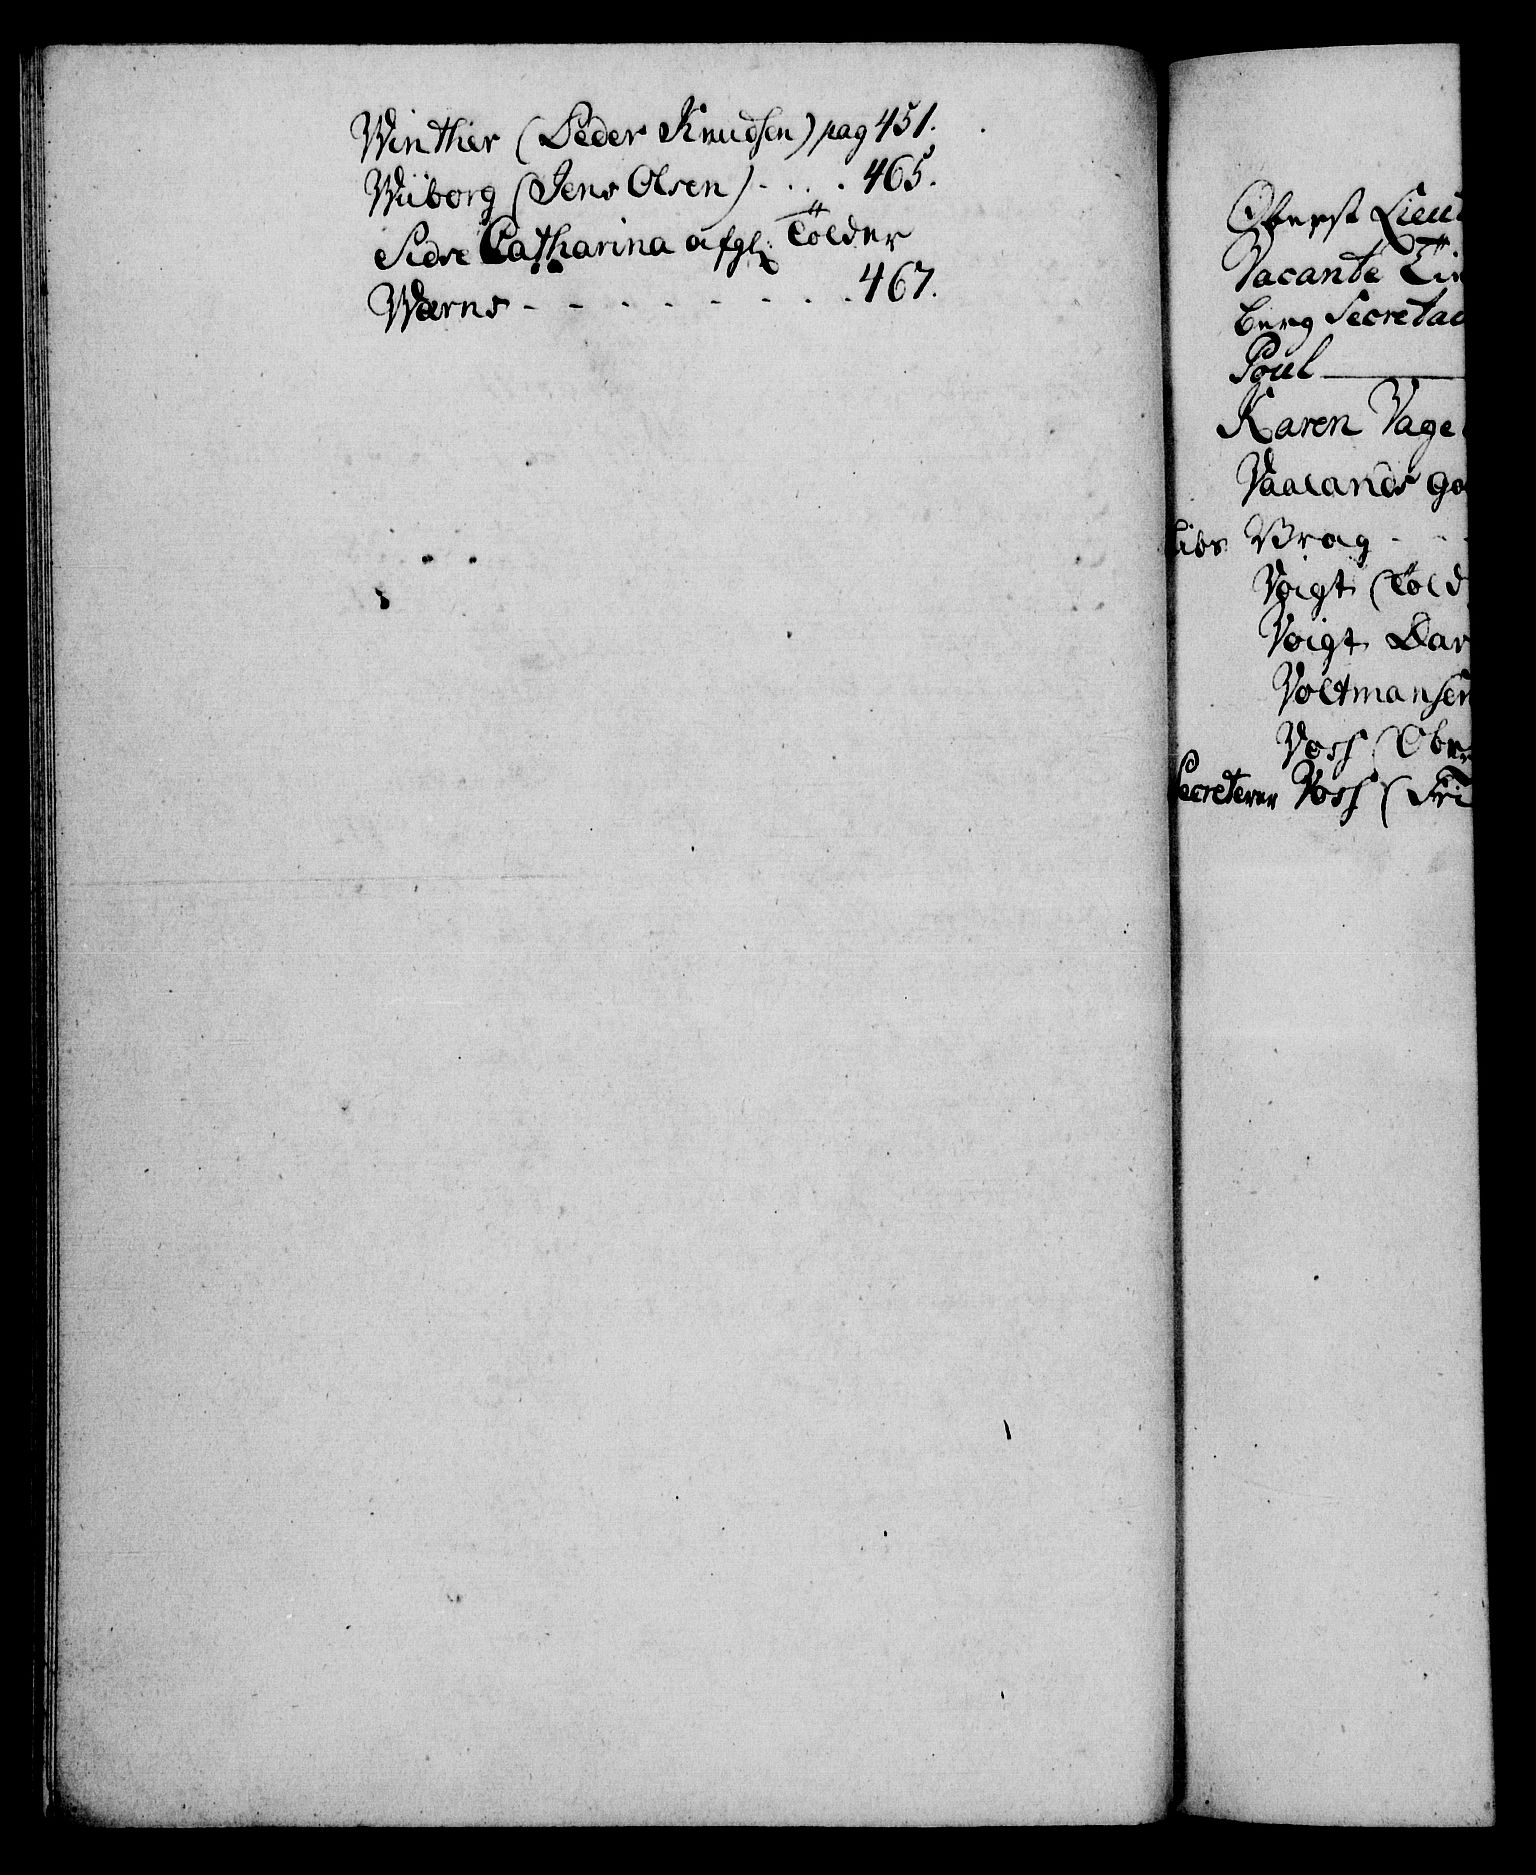 Winther (Peder Knudsen) pag 451.
Wiiborg (Jens Olsen) - . . . 465.
Sidse Catharina afgl: Tolder
Warns - - - - - - - . . 467.
Oberst Lieut
Vacante
berg Secreta
Poul
Karen Vage
Vaalands go
Vrag - -
Voigt (Told
Voigt Lar
Voltmansen
Voss (Obr
Secreterer Voss (Fri